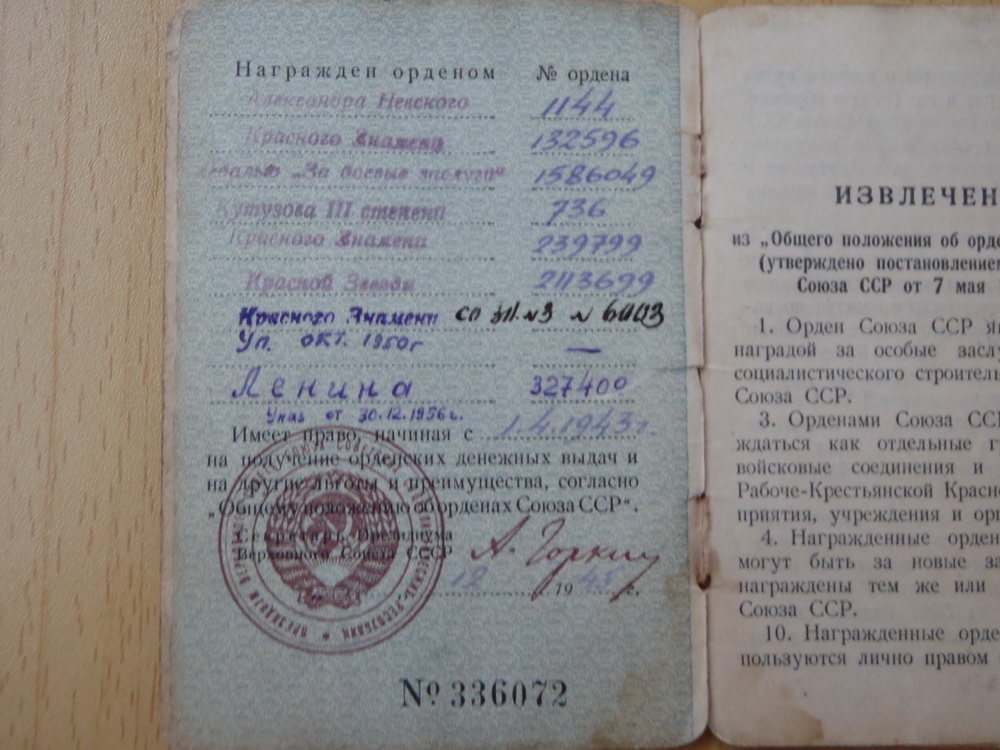 Награжден орденом № ордена
Александра Невского 1144
Красного Знамени 132596
медалью „За боевые заслуги“ 1586049
Кутузова III степени 736
Красного Знамени 239799
Красной Звезды 2113699
Красного Знамени со зн. №3 № 6003
Ук. окт. 1950г —
Ленина 327400
Указ от 30.12.1956г.
Имеет право, начиная с 1.4.1943г.
на получение орденских денежных выдач и
на другие льготы и преимущества, согласно
„Общему положению об орденах Союза ССР“.
Секретарь Президиума
Верховного Совета СССР А. Горкин
18 1945 г.
№ 336072
ИЗВЛЕЧЕН
из „Общего положения об орде
(утверждено постановлением
Союза ССР от 7 мая
1. Орден Союза ССР яв
наградой за особые заслу
социалистического строитель
Союза ССР.
3. Орденами Союза ССР
ждаться как отдельные гр
войсковые соединения и
Рабоче-Крестьянской Красно
приятия, учреждения и орг
4. Награжденные орден
могут быть за новые за
награждены тем же или
Союза ССР.
10. Награжденные орде
пользуются лично правом